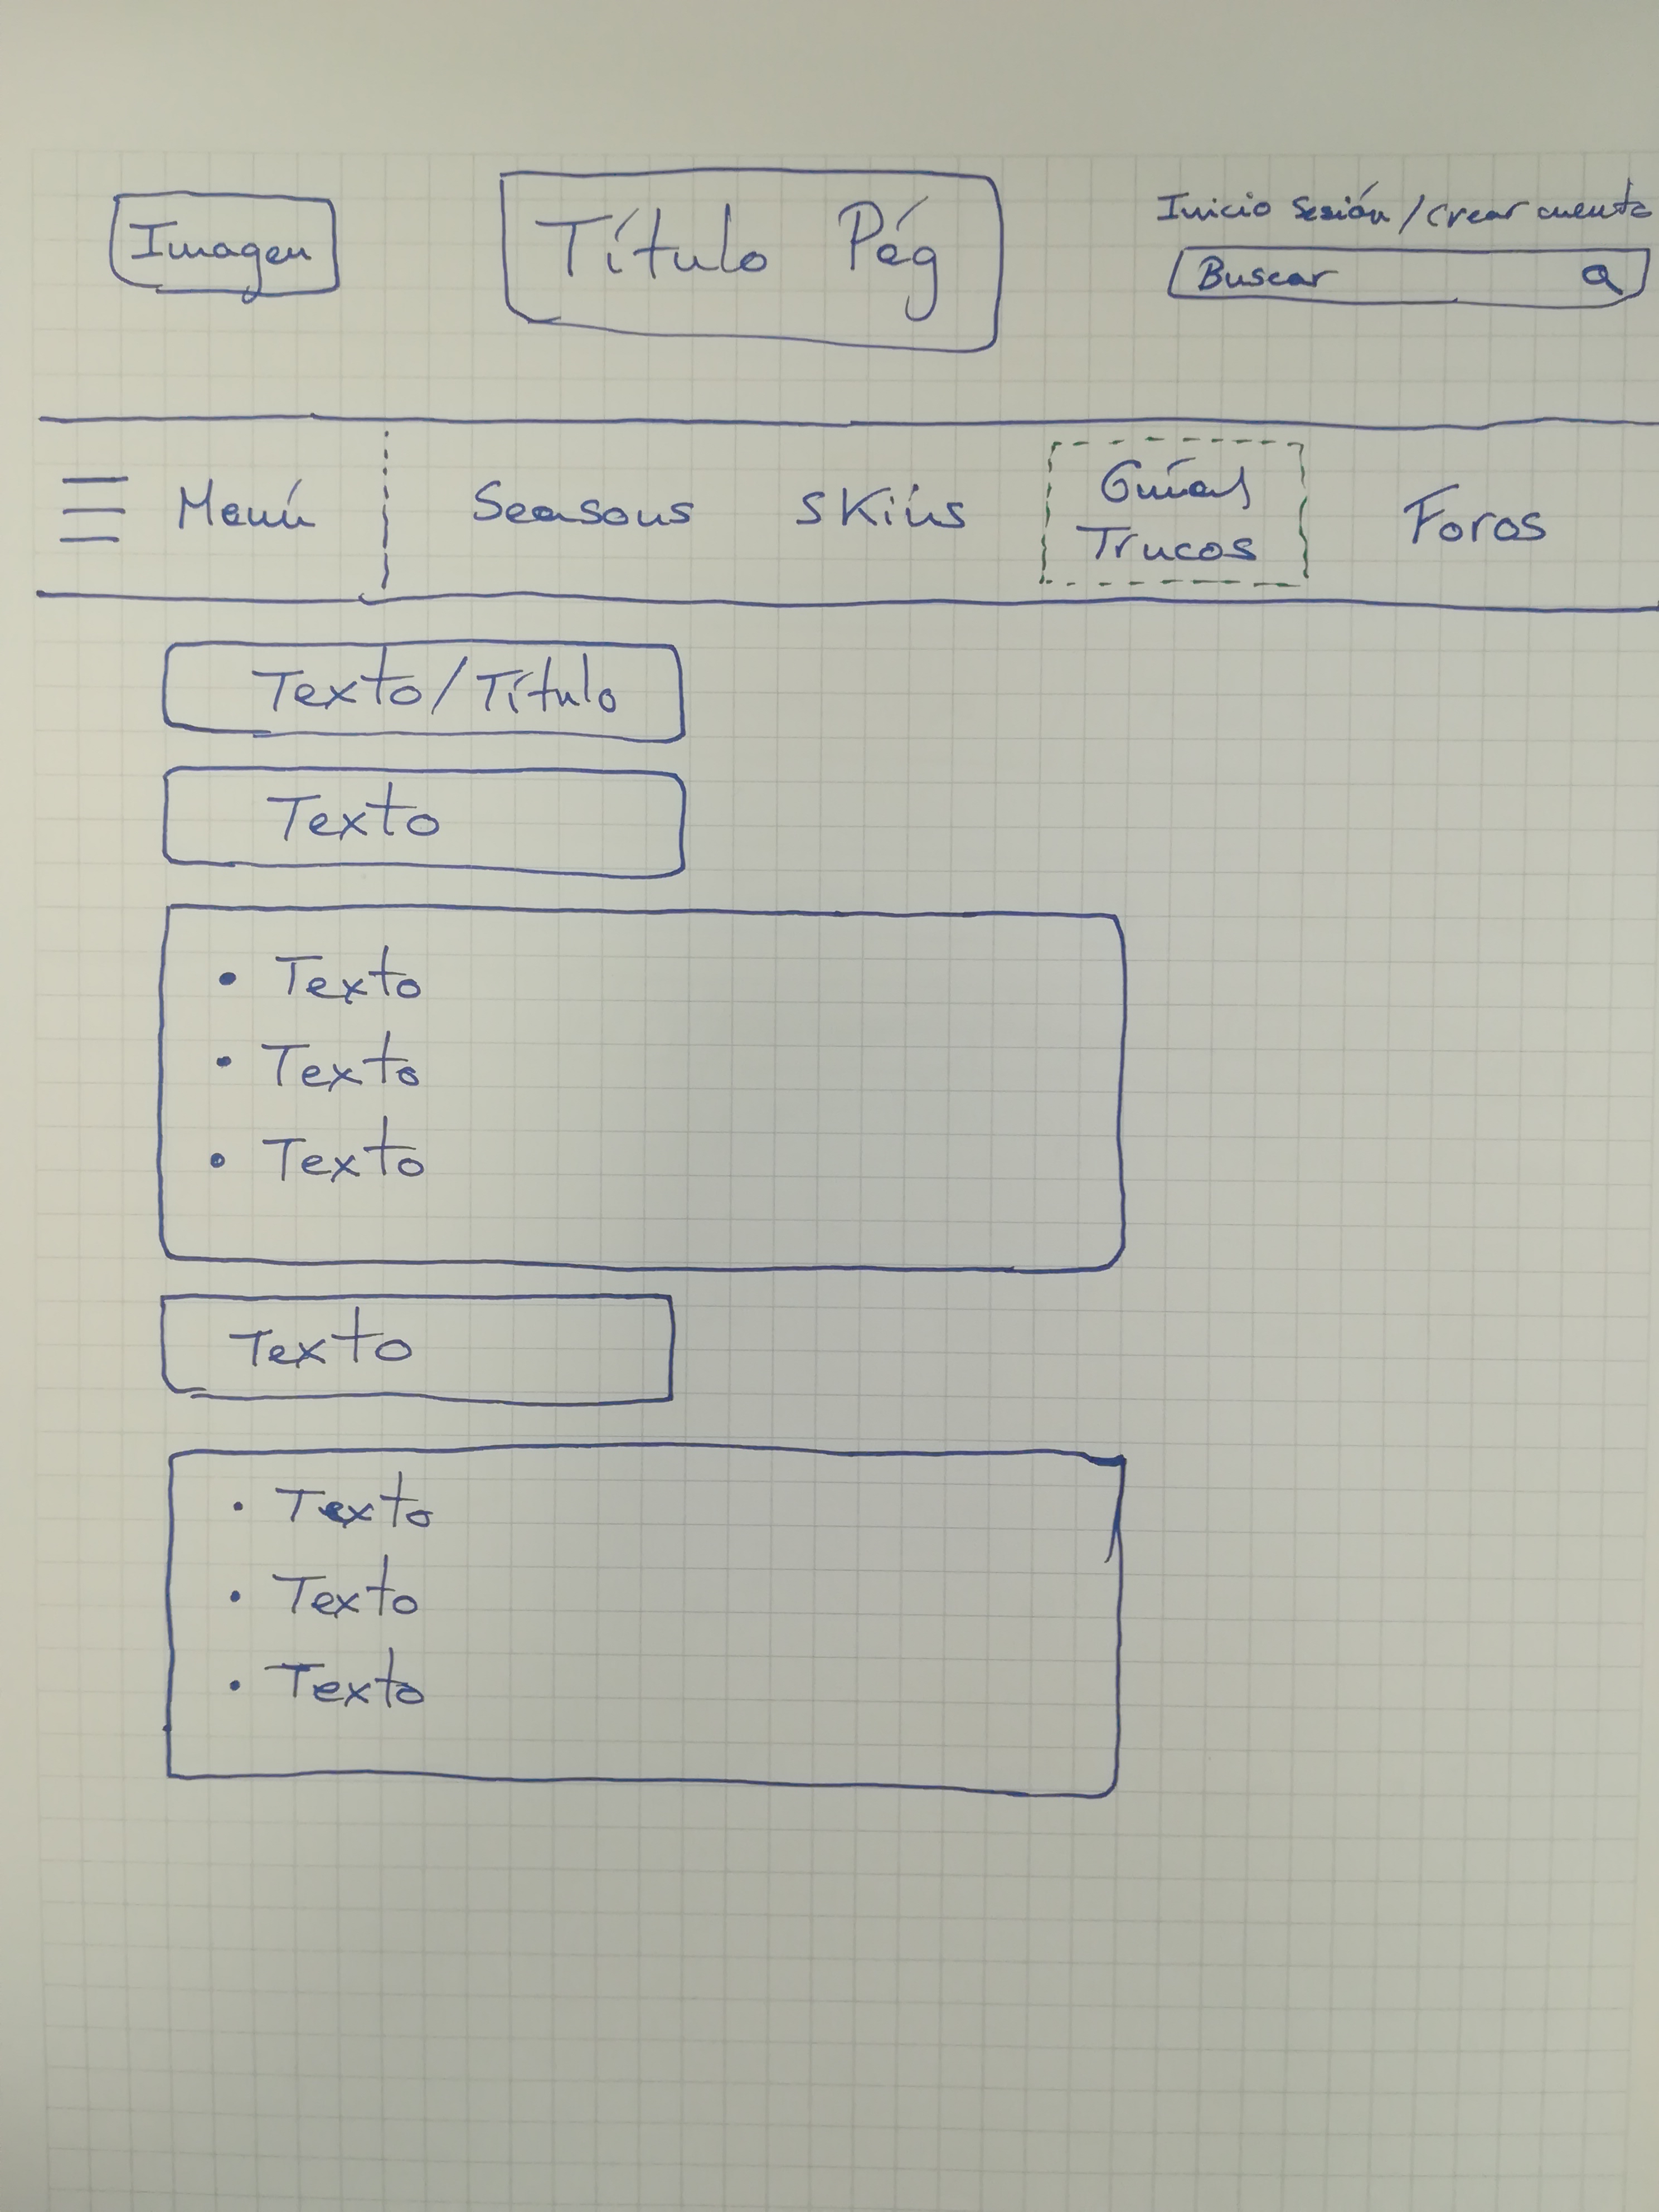 Imagen
Título Pág
Inicio Sesión / Crear cuenta
Buscar
Menú
Seasons
SKins
Guías
Trucos
Foros
Texto/Título
Texto
• Texto
• Texto
• Texto
Texto
• Texto
• Texto
• Texto